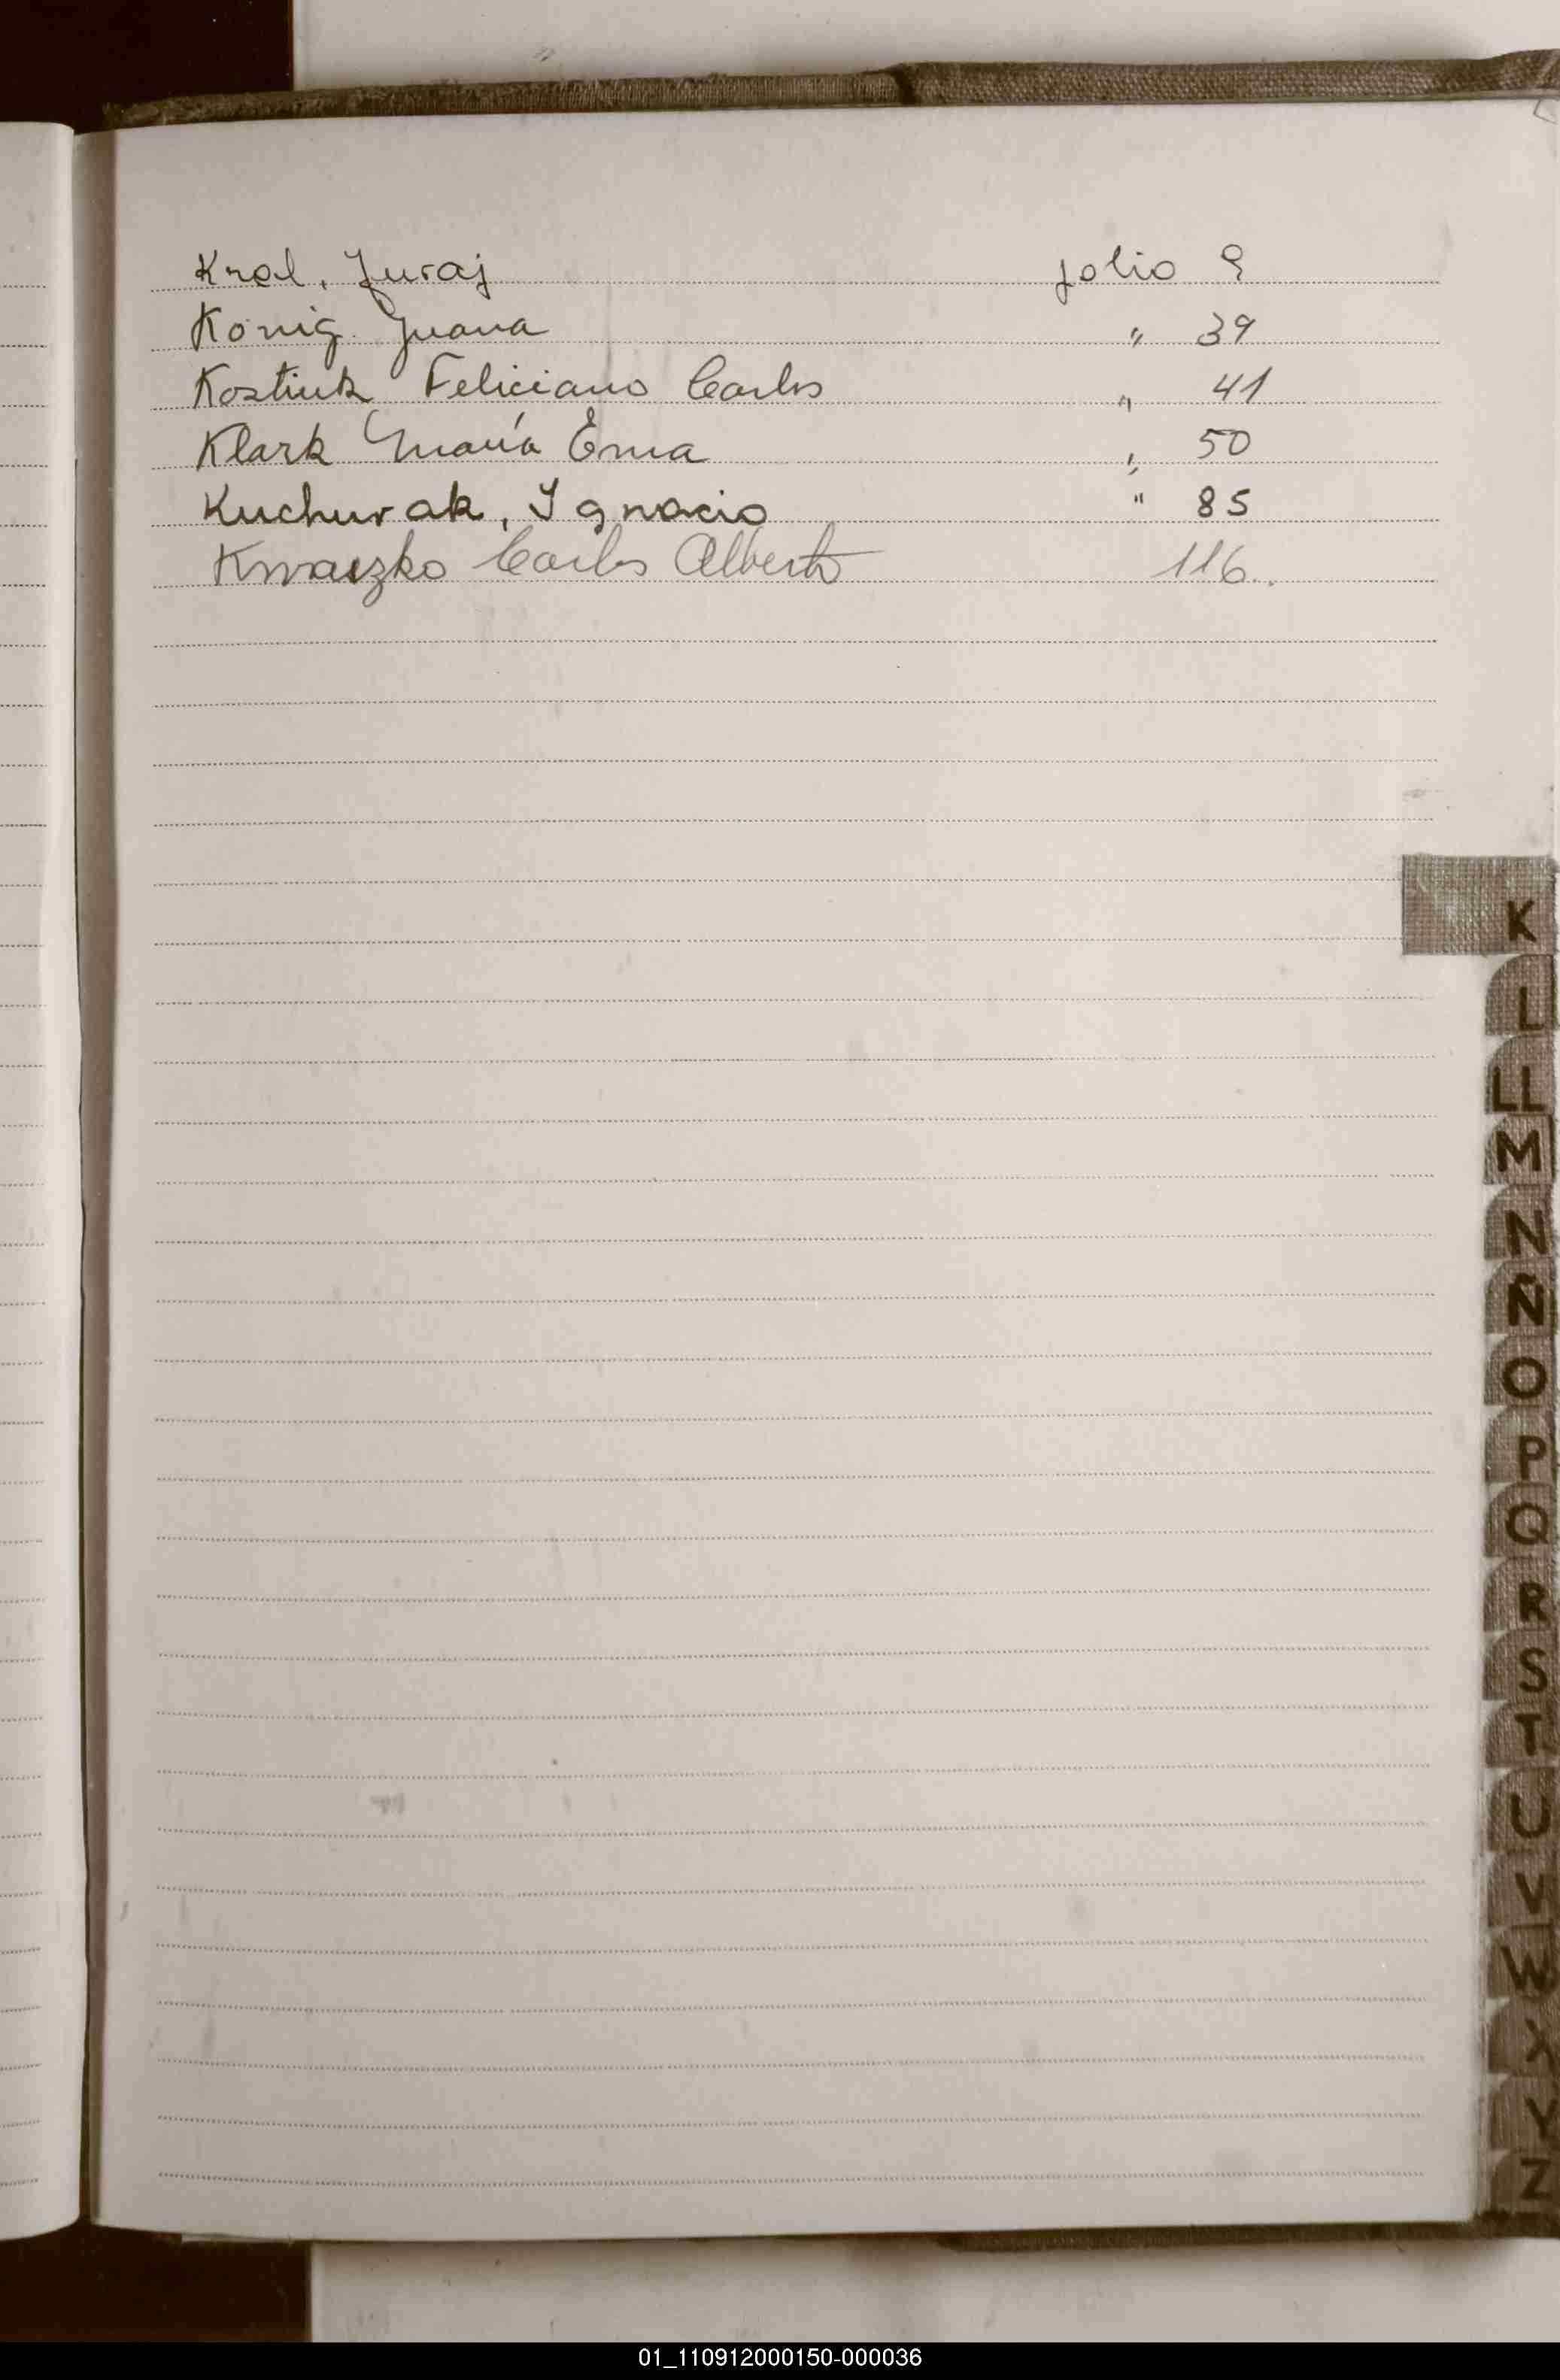 Kral, Juraj folio 9
König Juana " 39
Kostiuk Feliciano Carlos " 41
Klark María Ema " 50
Kuchurak, Ignacio " 85
Carlos Alberto 116.
K
L
LL
M
N
Ñ
O
P
Q
R
S
T
U
V
W
X
Y
Z
01_110912000150-000036